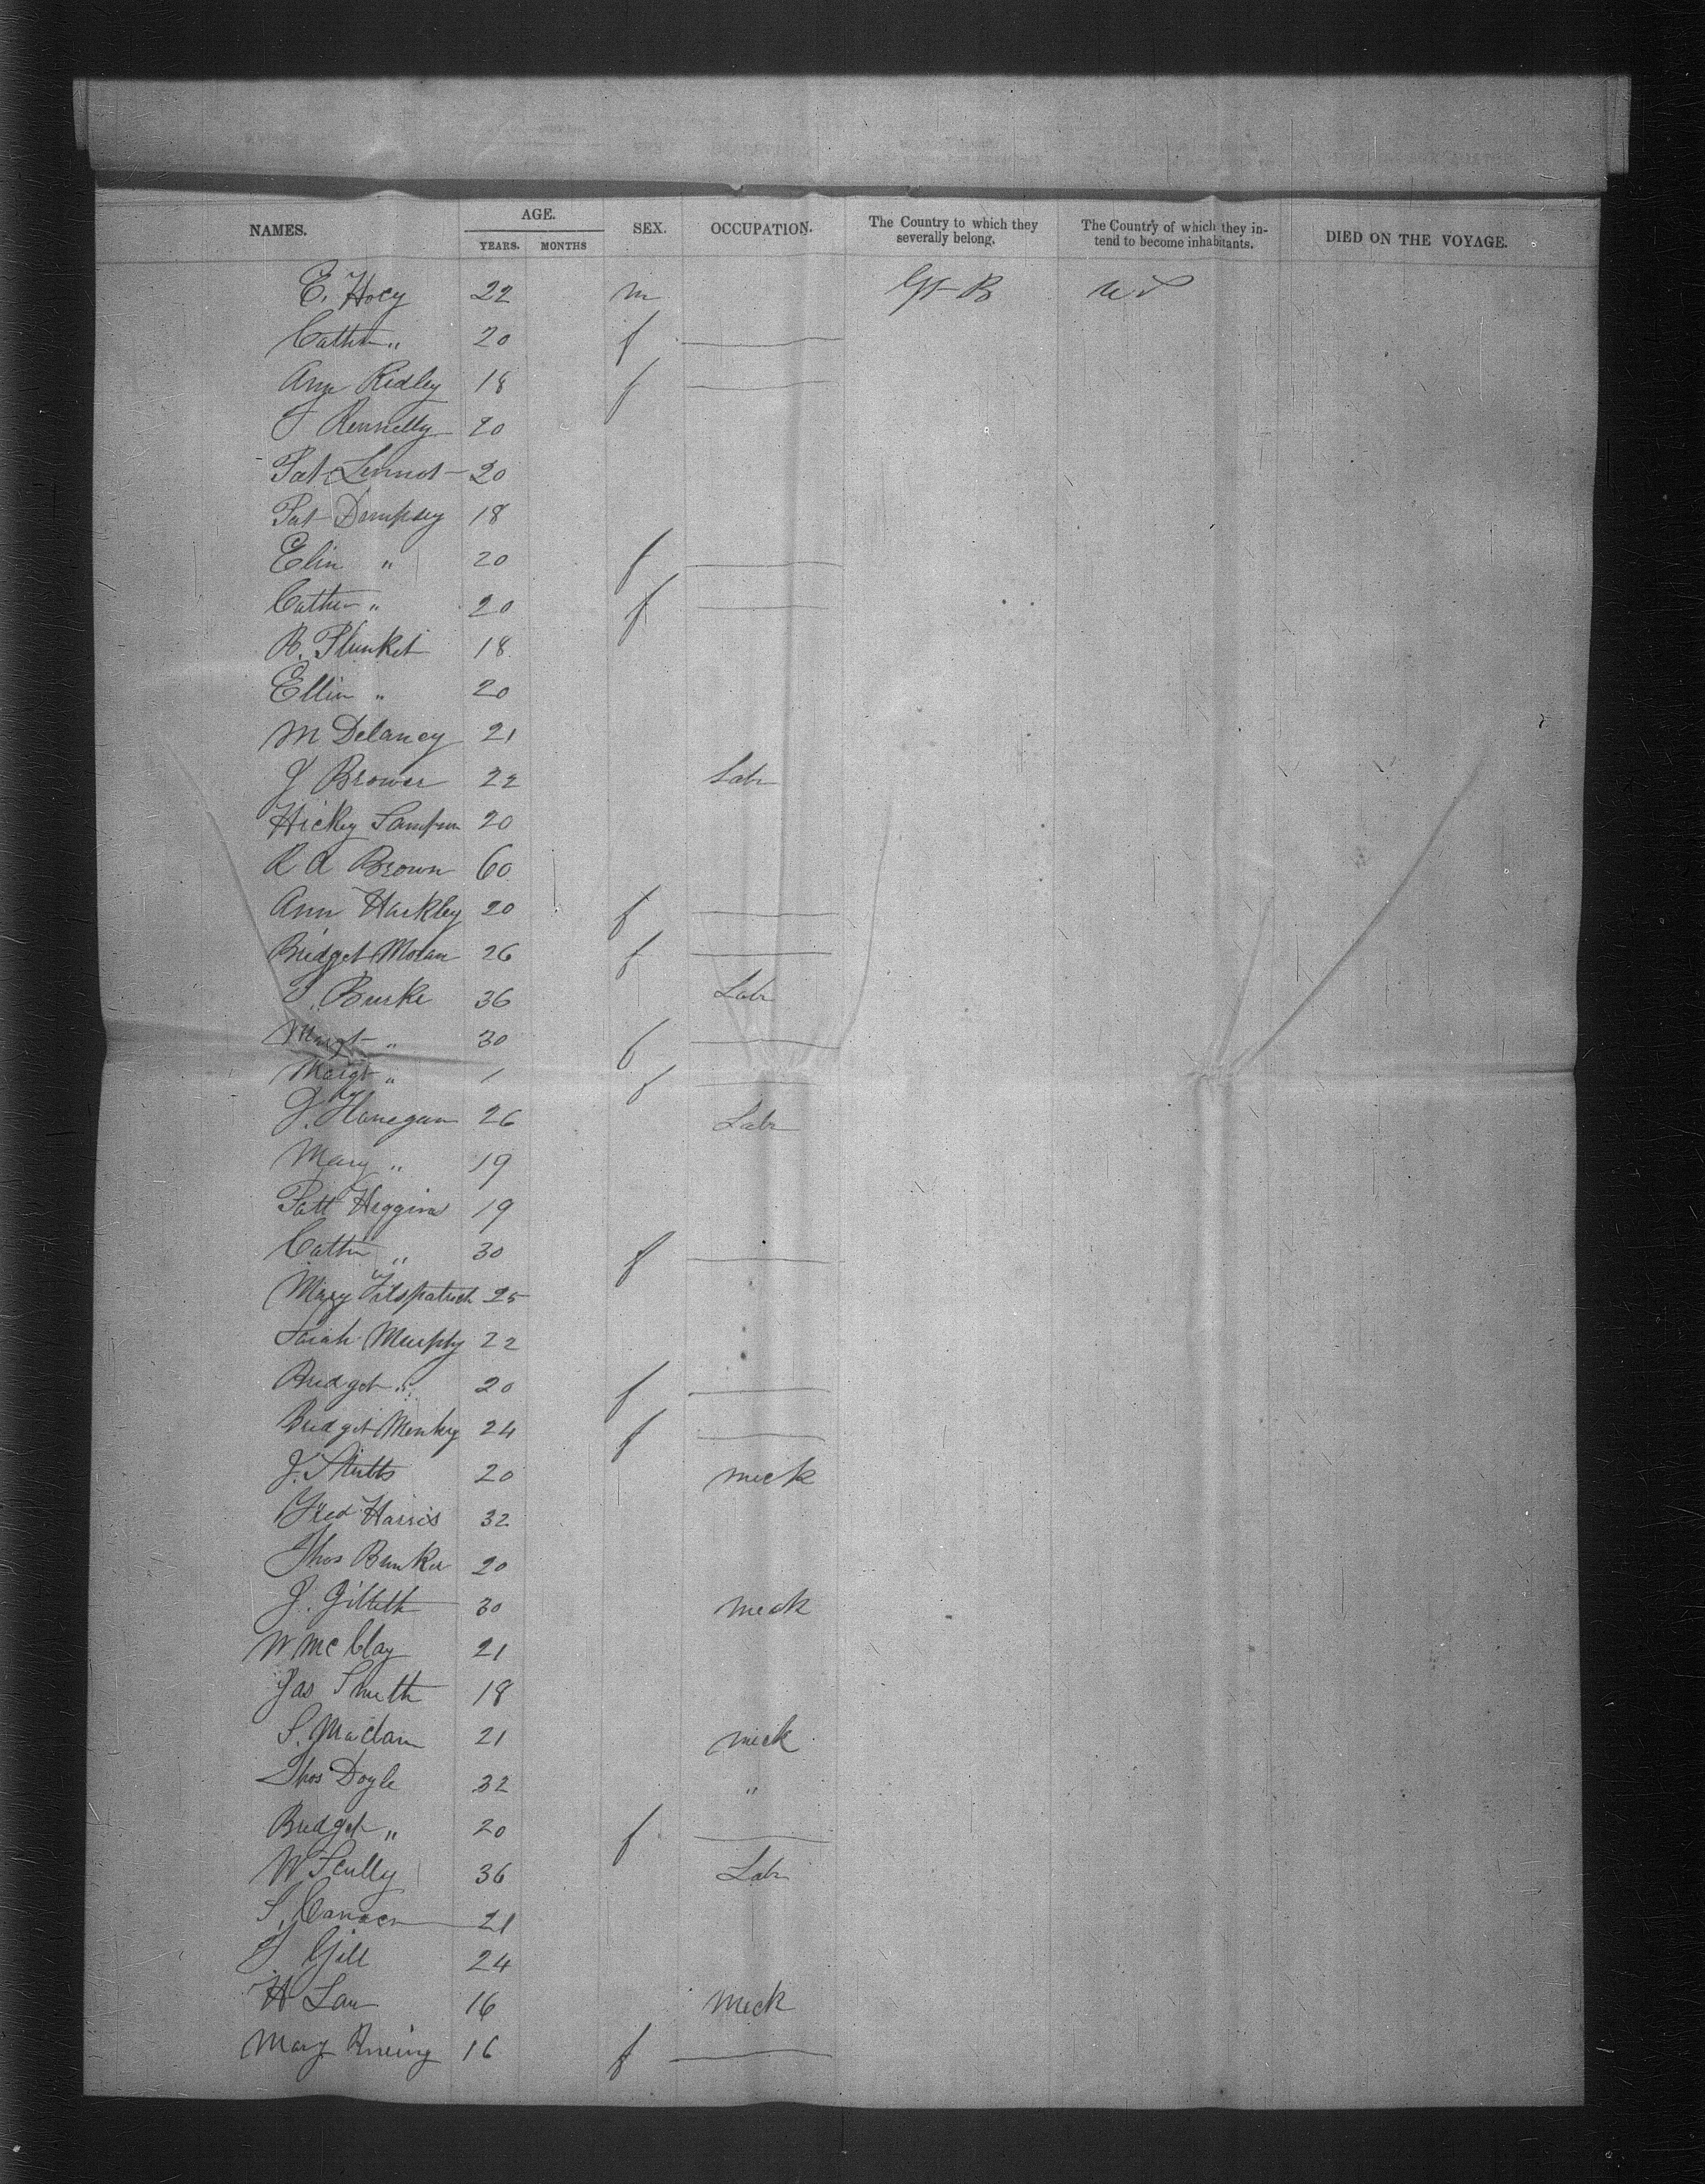 NAMES. AGE. YEARS. MONTHS SEX. OCCUPATION. The Country to which they severally belong. The Country of which they intend to become inhabitants. DIED ON THE VOYAGE.
E. Hoey 22 m Gt B U S
Cath " 20 f
Ann Ridley 18 f
J Kennelly 20
Pat Lennot 20
Pat Dempsey 18
Elin " 20 f
Cather " 20 f
R. Plunket 18
Ellin " 20
M Delaney 21
J Brower 22 Labr
Hickey 20
R A Brown 60
Ann Hackley 20 f
Bridget Moran 26 f
Burke 36 Labr
Margt " 30 f
Margt " 1 f
J. Flanegan 26 Labr
Mary " 19
Patt Higgins 19
Cathn " 30 f
Mary Fitspatrick 25
Sarah Murphy 22
Bridget " 20 f
Bridget 24 f
J. Stubbs 20 Meck
Fred Harris 32
Thos Bunker 20
J. 30 Meck
W McClay 21
Jas Smith 18
S. Madam 21 Meck
Thos Doyle 32 "
Bridget " 20 f
W Scully 36 Labr
S. 21
J Gill 24
H Law 16 Meck
Mary 16 f